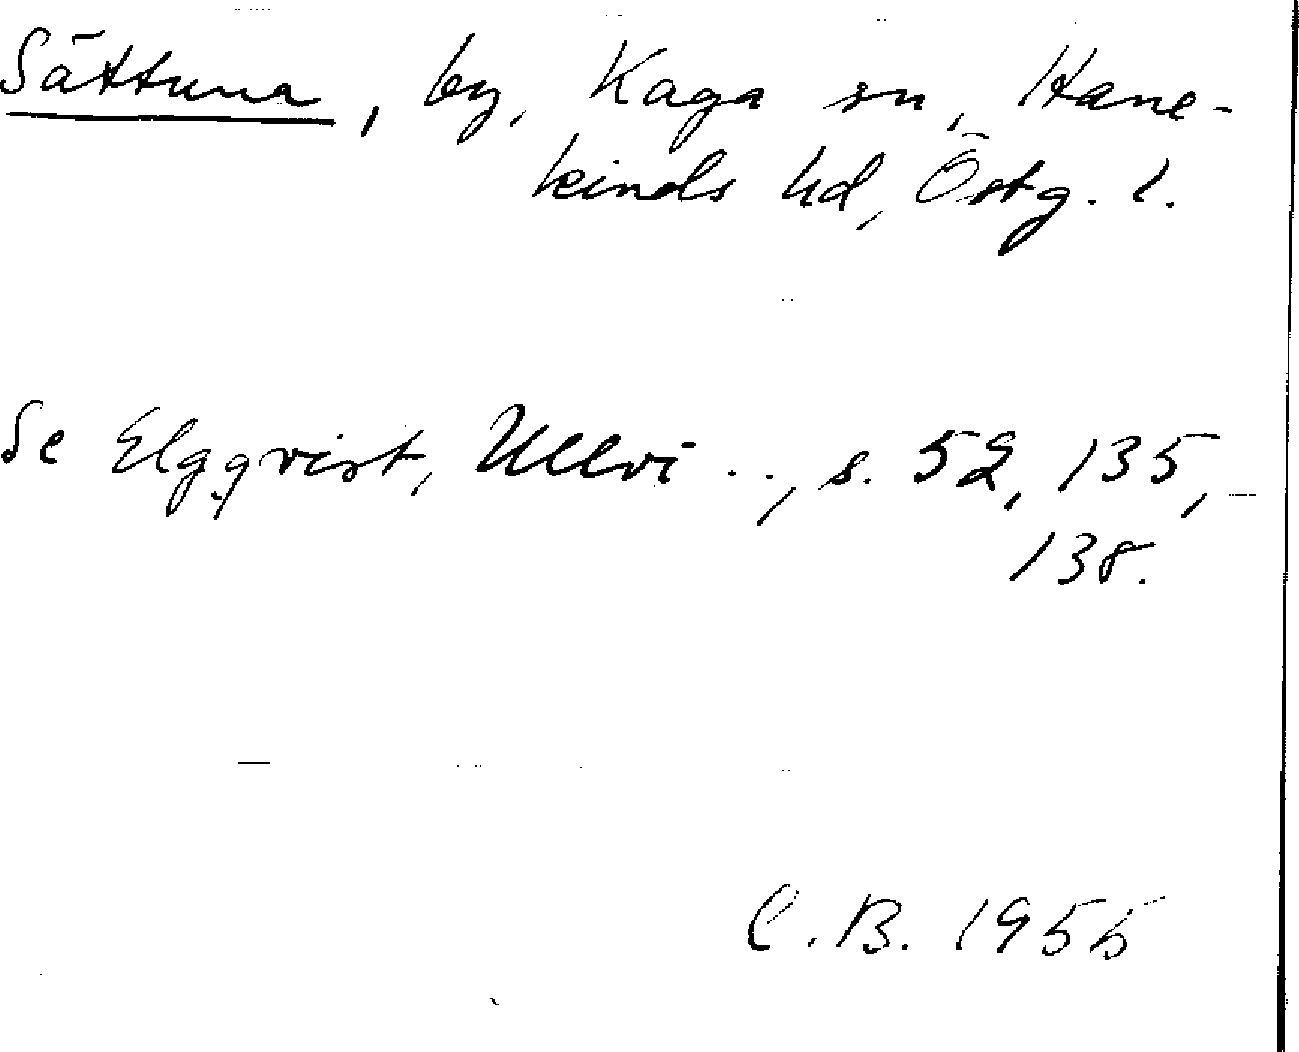 Sättuna, by, Kaga sn, Hane-
kinds hd, Östg. l.
Se Elgqvist, Ullvi .., s. 52, 135,
138.
C.B. 1955